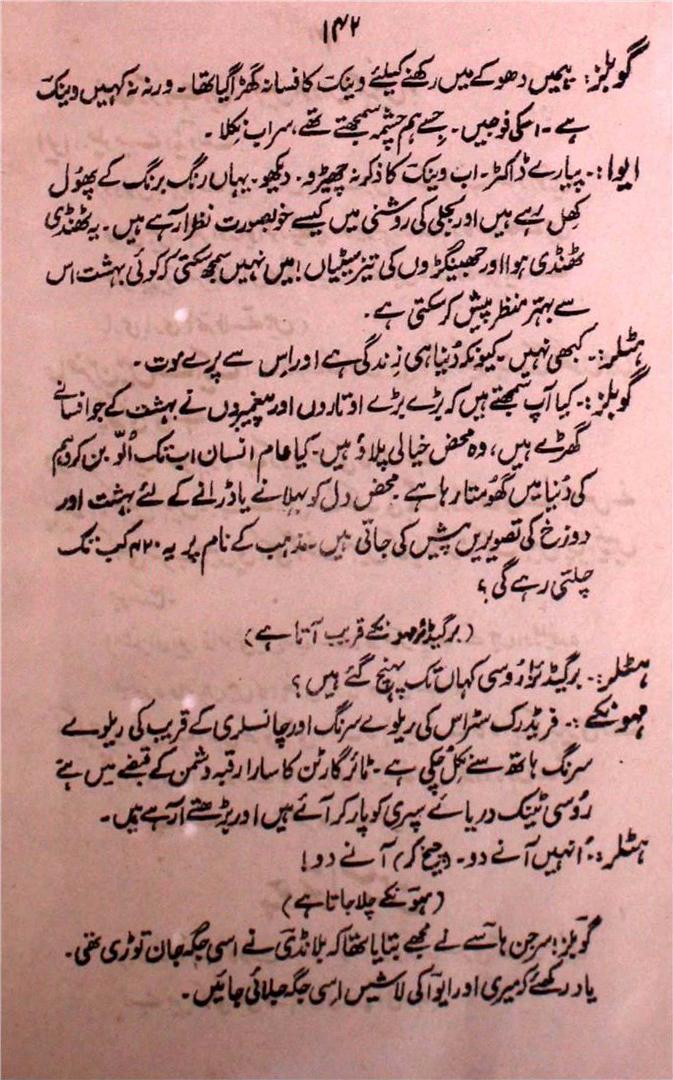 ۱۴۲
گوبلز:۔ ہمیں دھوکے میں رکھنے کیلئے وینک کا فسانہ گھڑا گیا تھا۔ ورنہ نہ کہیں وینک
ہے۔ اسکی فوجیں۔ جسے ہم چشمہ سمجھتے تھے، سراب نکلا۔
ایوا:۔ پیارے ڈاکٹر۔ اب وینک کا ذکر نہ چھیڑو۔ دیکھو۔ یہاں رنگ برنگ کے پھول
کھل رہے ہیں اور بجلی کی روشنی میں کیسے خوبصورت نظر آرہے ہیں۔ یہ ٹھنڈی
ٹھنڈی ہوا اور جھینگڑوں کی تیز سیٹیاں! میں نہیں سمجھ سکتی کہ کوئی بہشت اس
سے بہتر منظر پیش کر سکتی ہے۔
ہٹلر:۔ کبھی نہیں۔ کیونکہ دُنیا ہی زندگی ہے اور اس سے پرے موت۔
گوبلز:۔ کیا آپ سمجھتے ہیں کہ بڑے بڑے اوتاروں اور پیغمبروں نے بہشت کے جو افسانے
گھڑے ہیں، وہ محض خیالی پلاؤ ہیں۔ کیا عام انسان اب تک اُلّو بن کر وہم
کی دُنیا میں گھومتا رہا ہے۔ محض دل کو بہلانے یا ڈرانے کے لئے بہشت اور
دوزخ کی تصویریں پیش کی جاتی ہیں۔ مذہب کے نام پر یہ ۴۲۰ کب تک
چلتی رہے گی؟
(برگیڈئر مہونکے قریب آتا ہے)
ہٹلر:۔ برگیڈئر! رُوسی کہاں تک پہنچ گئے ہیں؟
مہونکے:۔ فریڈرک سٹراس کی ریلوے سرنگ اور چانسلری کے قریب کی ریلوے
سرنگ ہاتھ سے نکل چکی ہے۔ ٹائر گارٹن کا سارا رقبہ دشمن کے قبضے میں ہے
رُوسی ٹینک دریائے سپری کو پار کر آئے ہیں اور بڑھتے آرہے ہیں۔
ہٹلر:۔ اُنہیں آنے دو۔ (چیخ کر) آنے دو!
(مہونکے چلا جاتا ہے)
گوبلز: سرجن ہاسے نے مجھے بتایا تھا کہ بلانڈی نے اسی جگہ جان توڑی تھی۔
یاد رکھئے کہ میری اور ایوا کی لاشیں اسی جگہ جلائی جائیں۔